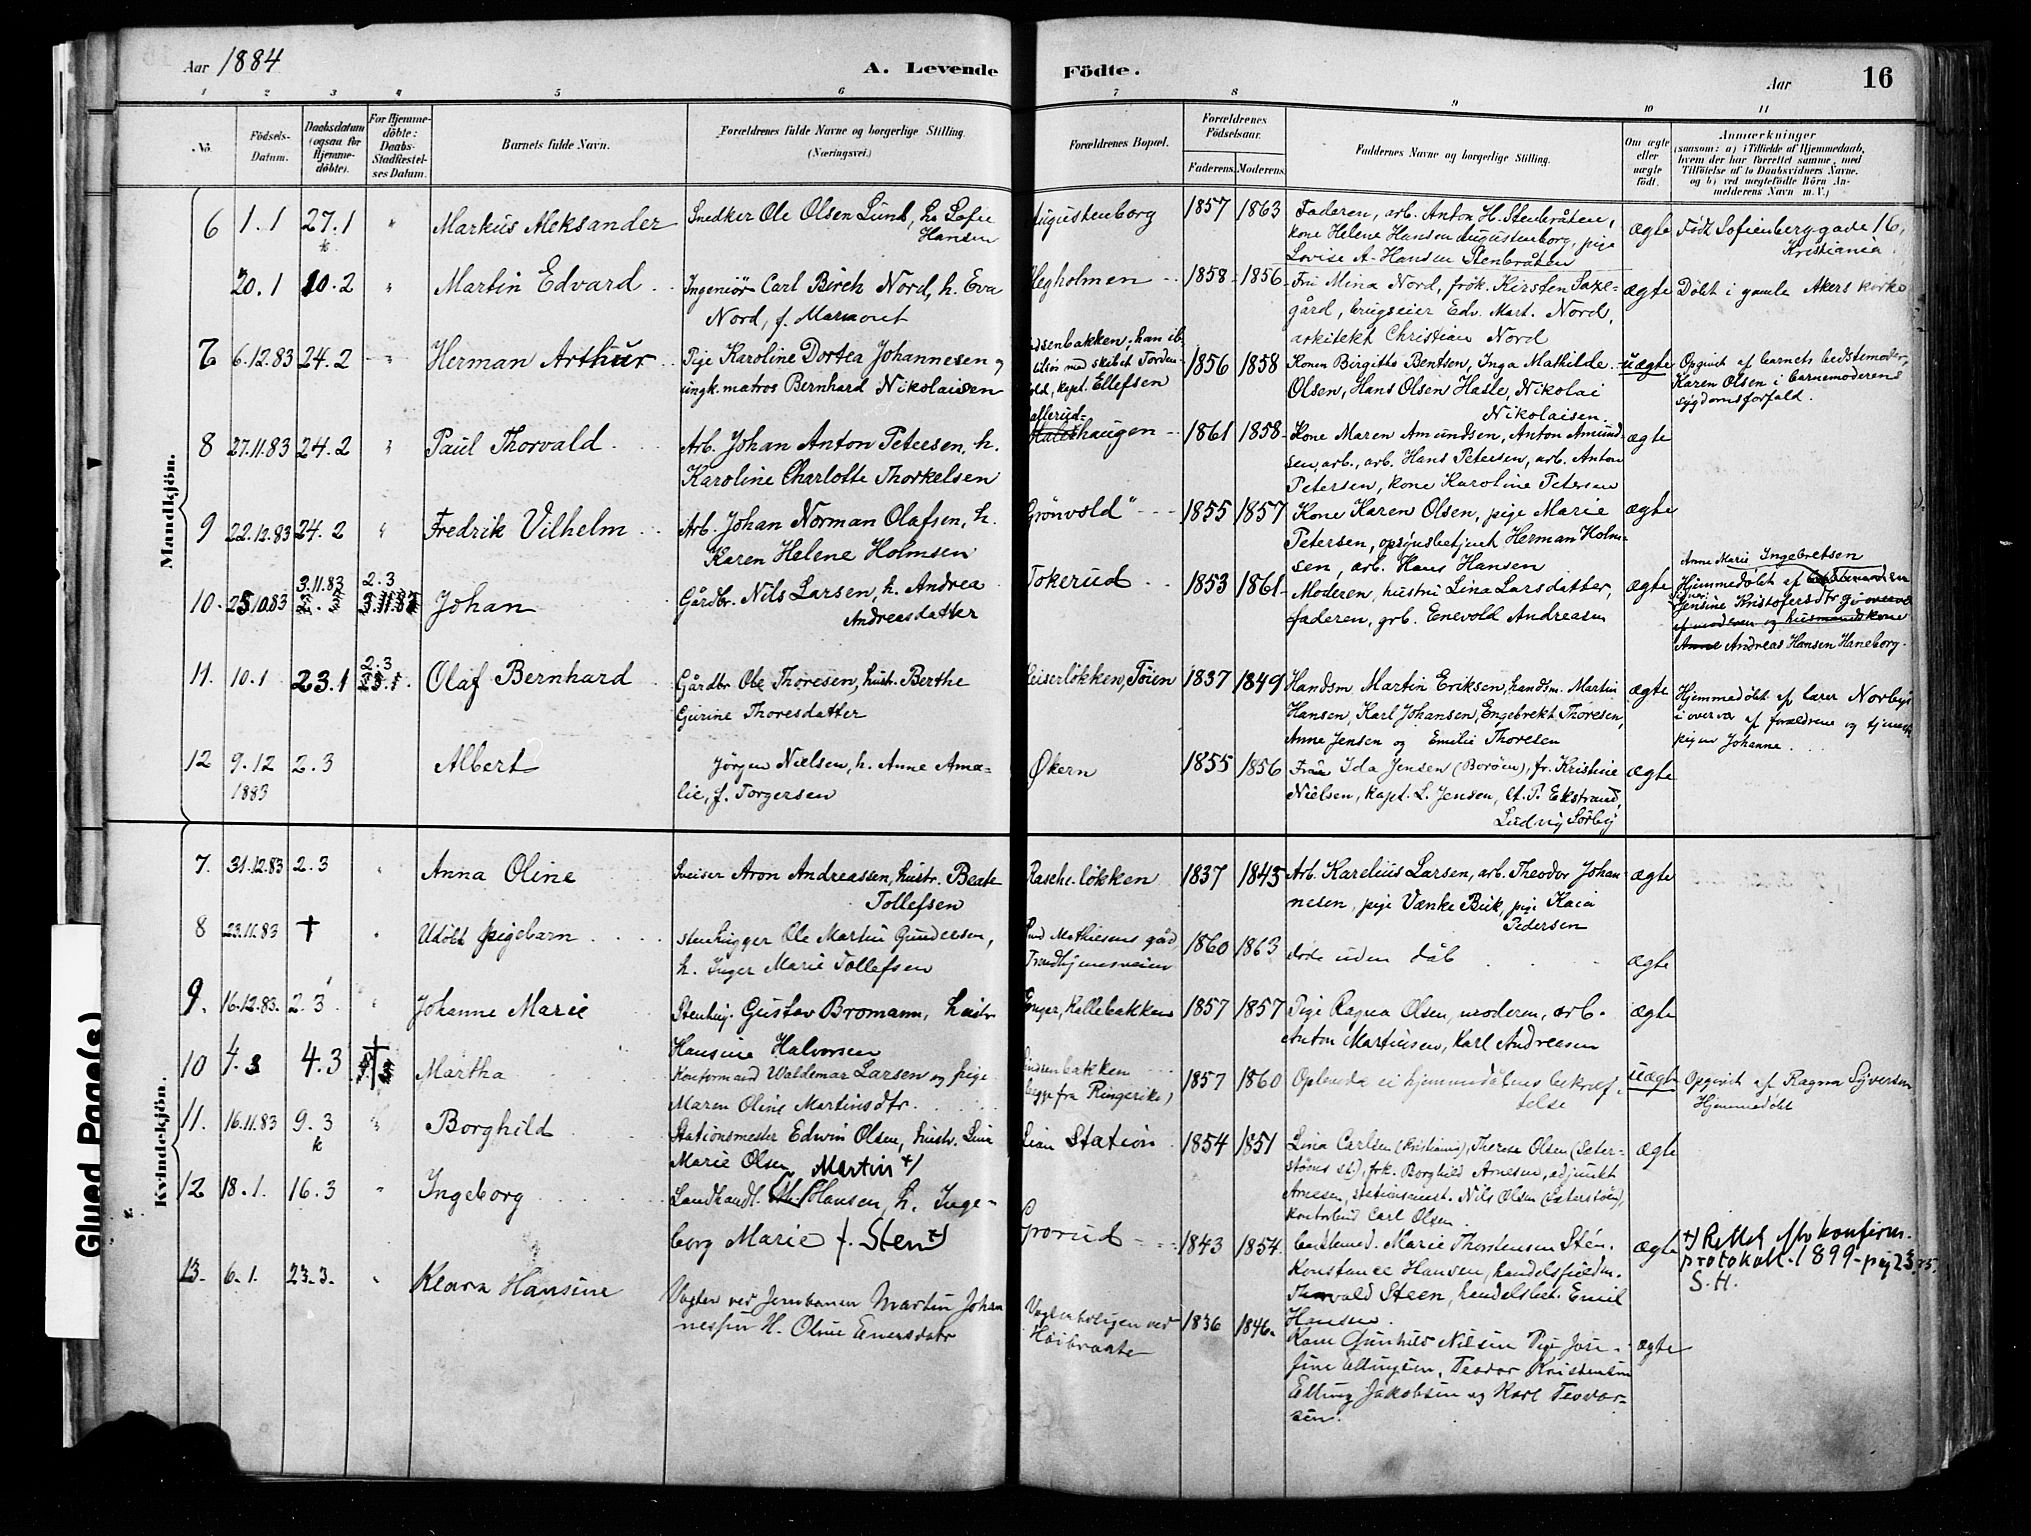 Aar 1884
A. Levende Födte.
Aar
16
1 2 3 4 5 6 7 8 9 10 11
No.
Födsels-Datum.
Daabsdatum (ogsaa for Hjemme-döbte).
For Hjemme-döbte: Daabs-Stadfæstel-ses Datum.
Barnets fulde Navn.
Forældrenes fulde Navne og borgerlige Stilling.
(Næringsvei.)
Forældrenes Bopæl.
Forældrenes Födselsaar.
Faderens. Moderens.
Faddernes Navne og borgerlige Stilling.
Om ægte eller uægte födt.
Anmærkninger
(saasom: a) i Tilfælde af Hjemmedaab, hvem der har forrettet samme, med Tilföielse af to Daabsvidners Navne, og b) ved uægtefödte Börn An-melderens Navn m. V.)
Mandkjön.
6 1.1 27.1 " Markus Aleksander
Snedker Ole Olsen Lund, h. Sofie
Hansen
Augustenborg 1857 1863
Faderen, arb. Anton H. Stenbråten,
kone Helene Hansen Augustenborg, pige
Lovise A. Hansen Stenbråten
ægte
Födt Sofienberg gade 16,
Kristiania
20.1 10.2 " Martin Edvard
Ingeniör Carl Birch Nord, h. Eva
Nord, f. Marmont
Hegholmen 1858 1856
Fru Mina Nord, frök. Kirsten Saxe-
gård, brugseier Edv. Mart. Nord,
arkitekt Christian Nord
ægte
Döbt i gamle Akers kirke
7 6.12.83 24.2 " Herman Arthur
Pige Karoline Dortea Johannesen og
ungk. matros Bernhard Nikolaisen
han ib.
med skibet Torden-
kapt. Ellefsen
1856 1858
Konen Birgitte Bentsen, Inga Mathilde
Olsen, Hans Olsen Hasle, Nikolai
Nikolaisen
uægte
Opgivet af barnets bedstemoder
Karen Olsen i barnemoderens
sygdomsforfald.
8 27.11.83 24.2 " Paul Thorvald
Arb. Johan Anton Petersen, h.
Karoline Charlotte Thorkelsen
haugen 1861 1858
Kone Maren Amundsen, Anton Amund-
sen, arb., arb. Hans Petersen, arb. Anton
Petersen, kone Karoline Petersen
ægte
9 22.12.83 24.2 " Fredrik Vilhelm
Arb. Johan Norman Olafsen, h.
Karen Helene Holmsen
Grönvold 1855 1857
Kone Karen Olsen, pige Marie
Petersen, opsynsbetjent Herman Holm-
sen, arb. Hans Hansen
ægte
10. 25.10.83 3.11.83 2.3 Johan
Gårdbr. Nils Larsen, h. Andrea
Andreasdatter
Tokerud 1853 1861
Moderen, hustru Lina Larsdatter,
faderen, grb. Enevold Andreasen
ægte
Anne Marie Ingebretsen
Hjemmedöbt af
Jensine Kristofersdtr
af moderen og husmandskone
Anne Andreas Hansen Haneborg.
11. 10.1 23.1 2.3 Olaf Bernhard
Gårdbr. Ole Thoresen, hustr. Berthe
Gurine Thoresdatter
Keiserlökken, Töien 1837 1849
Handsm. Martin Eriksen, handsm. Martin
Hansen, Karl Johansen, Engebrekt Thoresen,
Anne Jensen og Emilie Thoresen
ægte
Hjemmedöbt af lærer Norbye
i overvær af forældrene og tjeneste-
pigen Johanne.
12 9.12 1883 2.3 Albert
Jørgen Nielsen, h. Anne Ama-
lie, f. Torgersen
Økern 1855 1856
Ida Jensen (Boröen), fr. Kristine
Nielsen, kapt. L. Jensen, P. Ekstrand,
Ludvig Sörby
ægte
Kvindekjön.
7. 31.12.83 2.3 " Anna Oline
Sveiser Aron Andreassen, hustr. Beate
Tollefsen
Raschelökken 1837 1843
Arb. Karelius Larsen, arb. Theodor Johan
nesen, pige Vænke Bük, pige Kaia
Pedersen
ægte
8 23.11.83 † " Udöbt pigebarn
stenhugger Ole Martin Gundersen,
h. Inger Marie Tollefsen
Mathiesens gård,
Trondhjemsveien
1860 1863
döde uden dåb
ægte
9. 16.12.83. 2.3 " Johanne Marie
Stenhug. Gustav Bromann, hustr.
Hansine Halvorsen
Enger, Kallebakken 1857 1857
Pige Ragna Olsen, moderen, arb.
Anton Martinsen, Karl Andreasen
ægte
10 4.3 4.3 † Martha
Kontormand Waldemar Larsen og pige
Maren Oline Martinsdtr.
(begge fra Ringerike)
1857 1860
Oplæsda ei hjemmedåbens bekræf-
telse
uægte
Opgivet af Ragna Syversen
Hjemmedöbt
11. 16.11.83 9.3 " Borghild
Stationsmester Edwin Olsen, hustr. Lina
Marie Olsen
Lian Station 1854 1851
Lina Carlsen (Kristiania), Therese Olsen (Sæter-
stöens st), frk. Borghild Arnesen, adjunkt
Arnesen, stationsmest. Nils Olsen (Sæterstöen),
kontorbud Carl Olsen
ægte
12 18.1. 16.3 " Ingeborg
Martin +)
Landhandl. Hansen, h. Inge-
borg Marie f. Sten +)
Grorud 1843 1854
Marie Thorstensen Stén.
Konstance Hansen, handelsfuldm.
Torvald Steen, handelsbet. Emil
Hansen.
ægte
+) Rettet efter konfirm.
protokoll. 1899 - pag 23
S.H.
13. 6.1. 23.3. " Klara Hansine
Vogter ved Jernbanen Martin Johan
nessen H. Oline Einersdatr
Vogterboligen ved
Höibraate
1836 1846
Kone Gunhild Nilsen Pige Jose-
fine Ellingsen, Teodor Kristensen
Elling Jakobsen og Karl Teodor-
sen.
ægte
Glued Page(s)